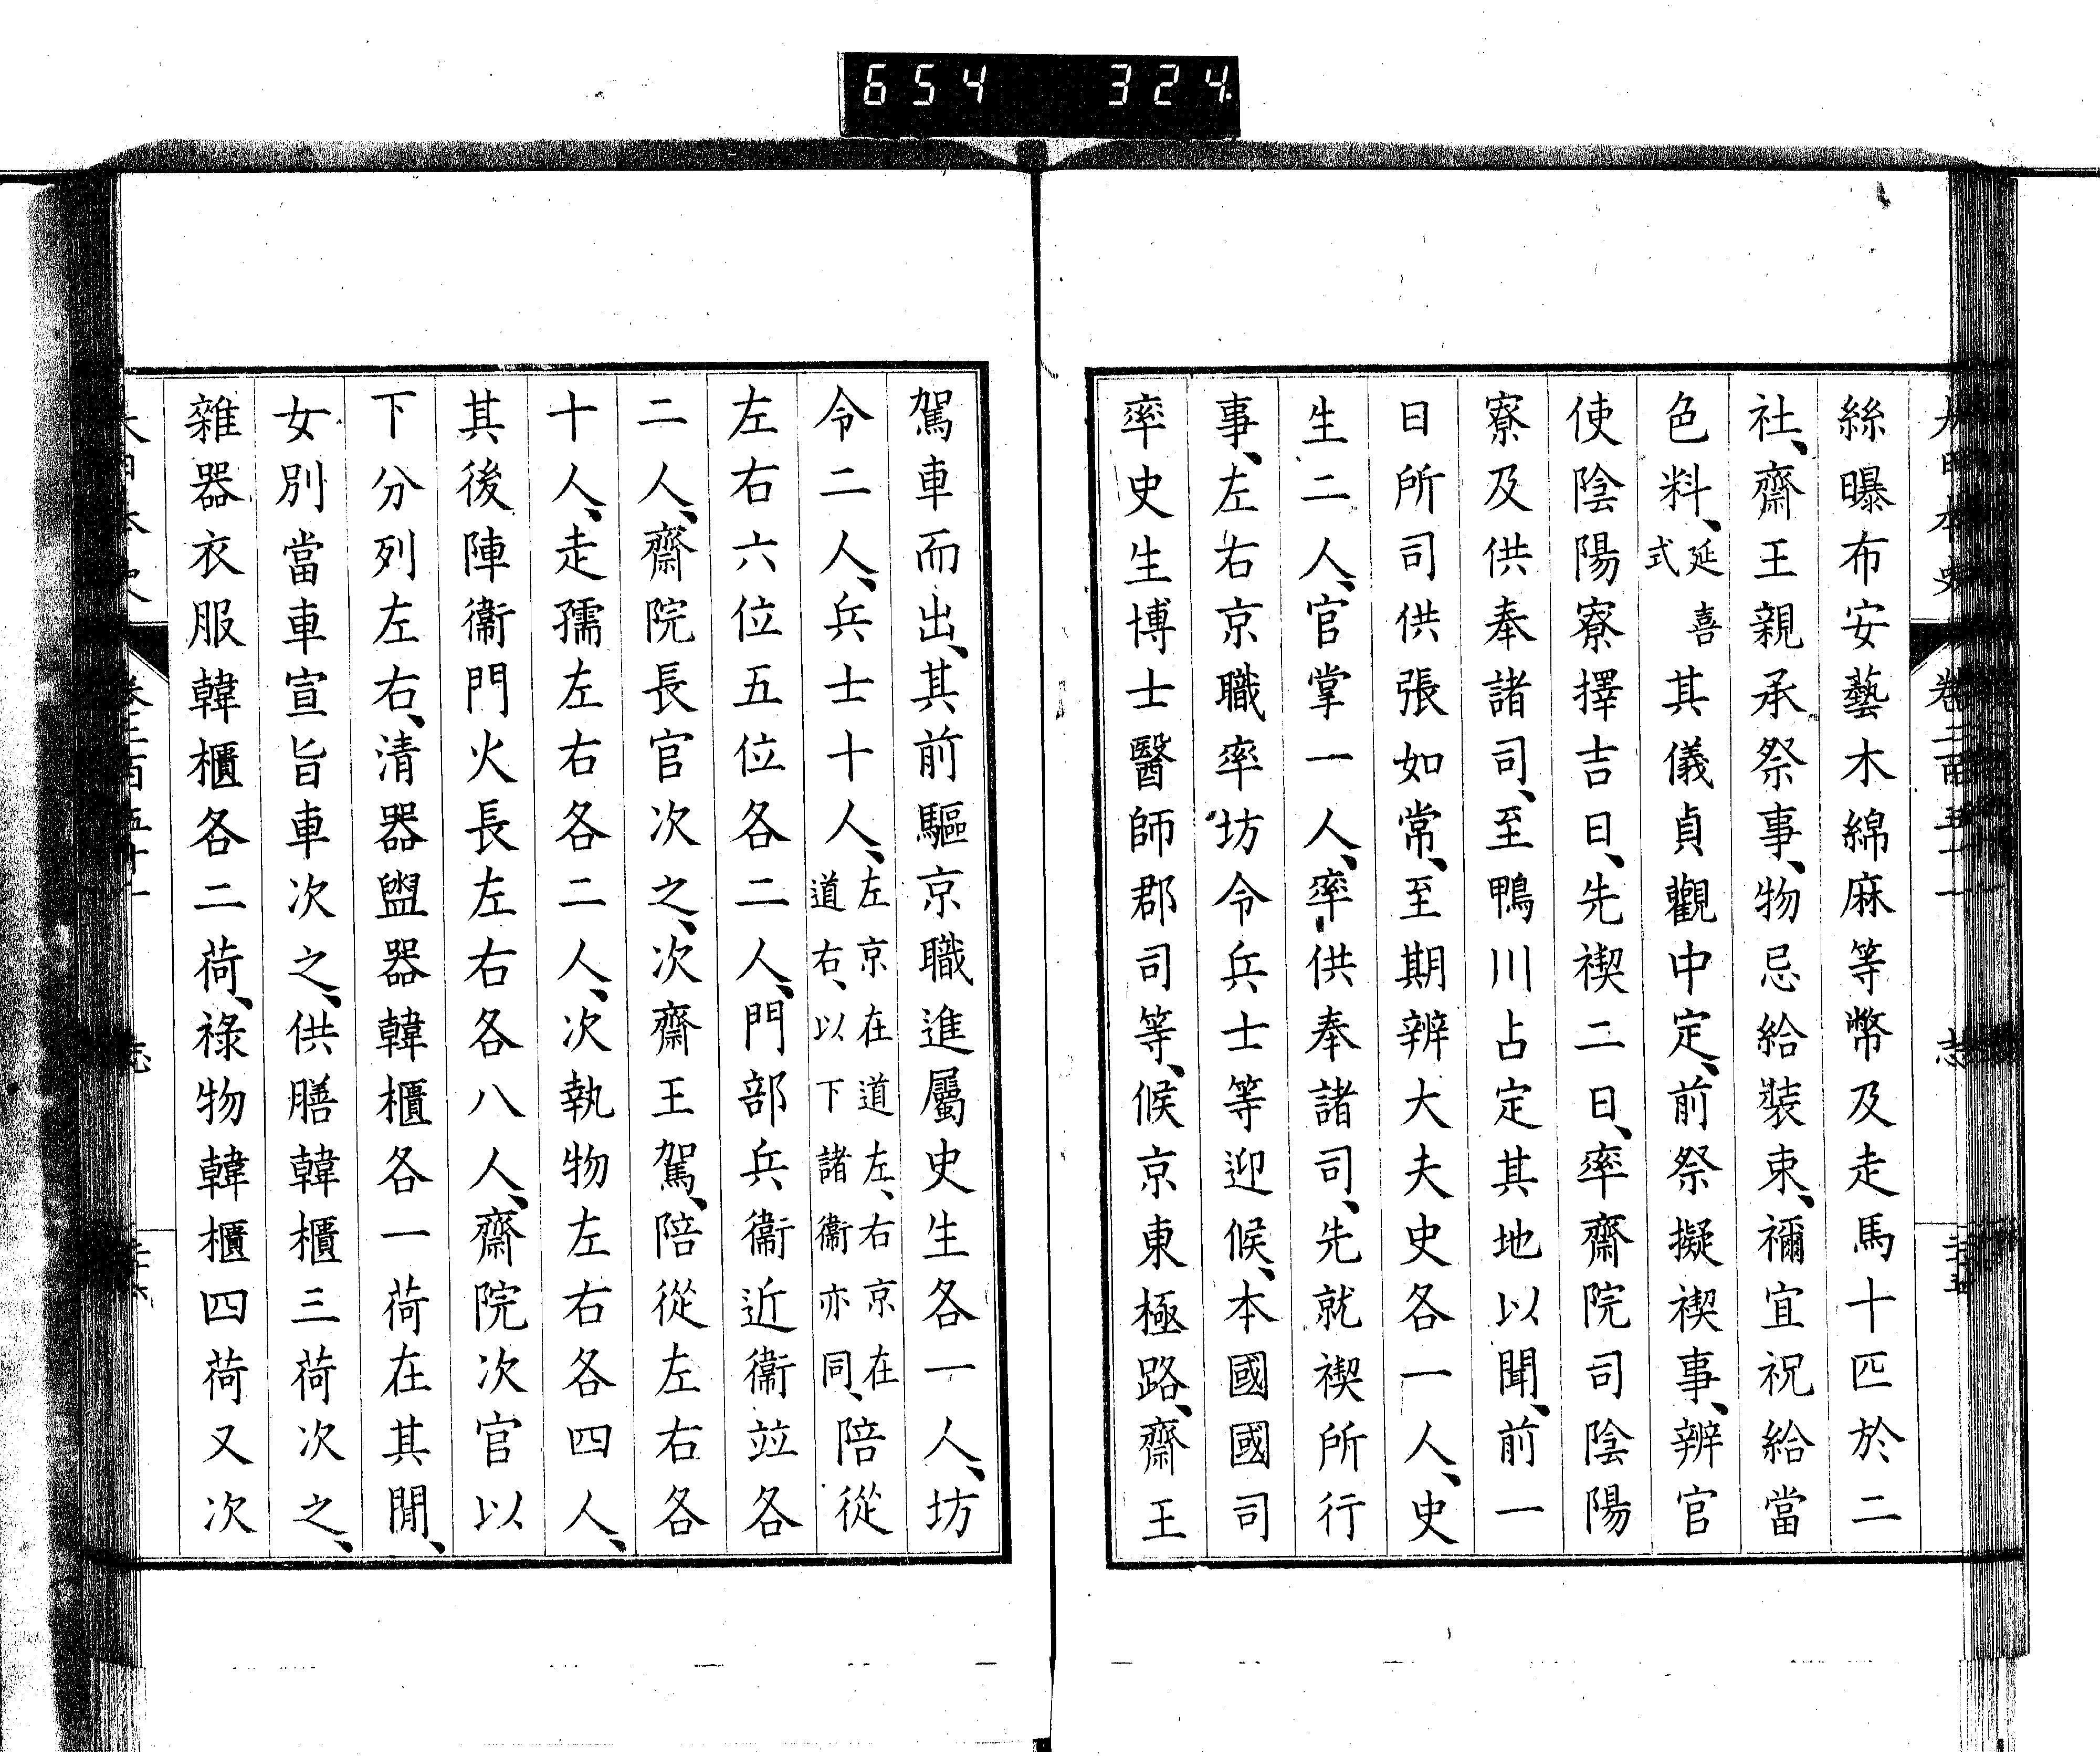 654 324
大日本史 卷二百五十一 志 二十五
絲曝布安藝木綿麻等幣及走馬十匹於二
社、齋王親承祭事、物忌給裝束、禰宜祝給當
色料、延喜式其儀貞觀中定、前祭擬禊事、辨官
使陰陽寮擇吉日、先禊二日、率齋院司陰陽
寮及供奉諸司、至鴨川占定其地以聞、前一
日所司供張如常、至期辨大夫史各一人、史
生二人、官掌一人、率供奉諸司、先就禊所行
事、左右京職率坊令兵士等迎候、本國國司
率史生博士醫師郡司等、候京東極路、齋王
駕車而出、其前驅京職進屬史生各一人、坊
令二人、兵士十人、左京在道左、右京在道右、以下諸衞亦同、陪從
左右六位五位各二人、門部兵衞近衞竝各
二人、齋院長官次之、次齋王駕、陪從左右各
十人、走孺左右各二人、次執物左右各四人、
其後陣衞門火長左右各八人、齋院次官以
下分列左右、清器盥器韓櫃各一荷在其閒、
女別當車宣旨車次之、供膳韓櫃三荷次之、
雜器衣服韓櫃各二荷、祿物韓櫃四荷又次
大日本史 卷二百五十一 志 二十六